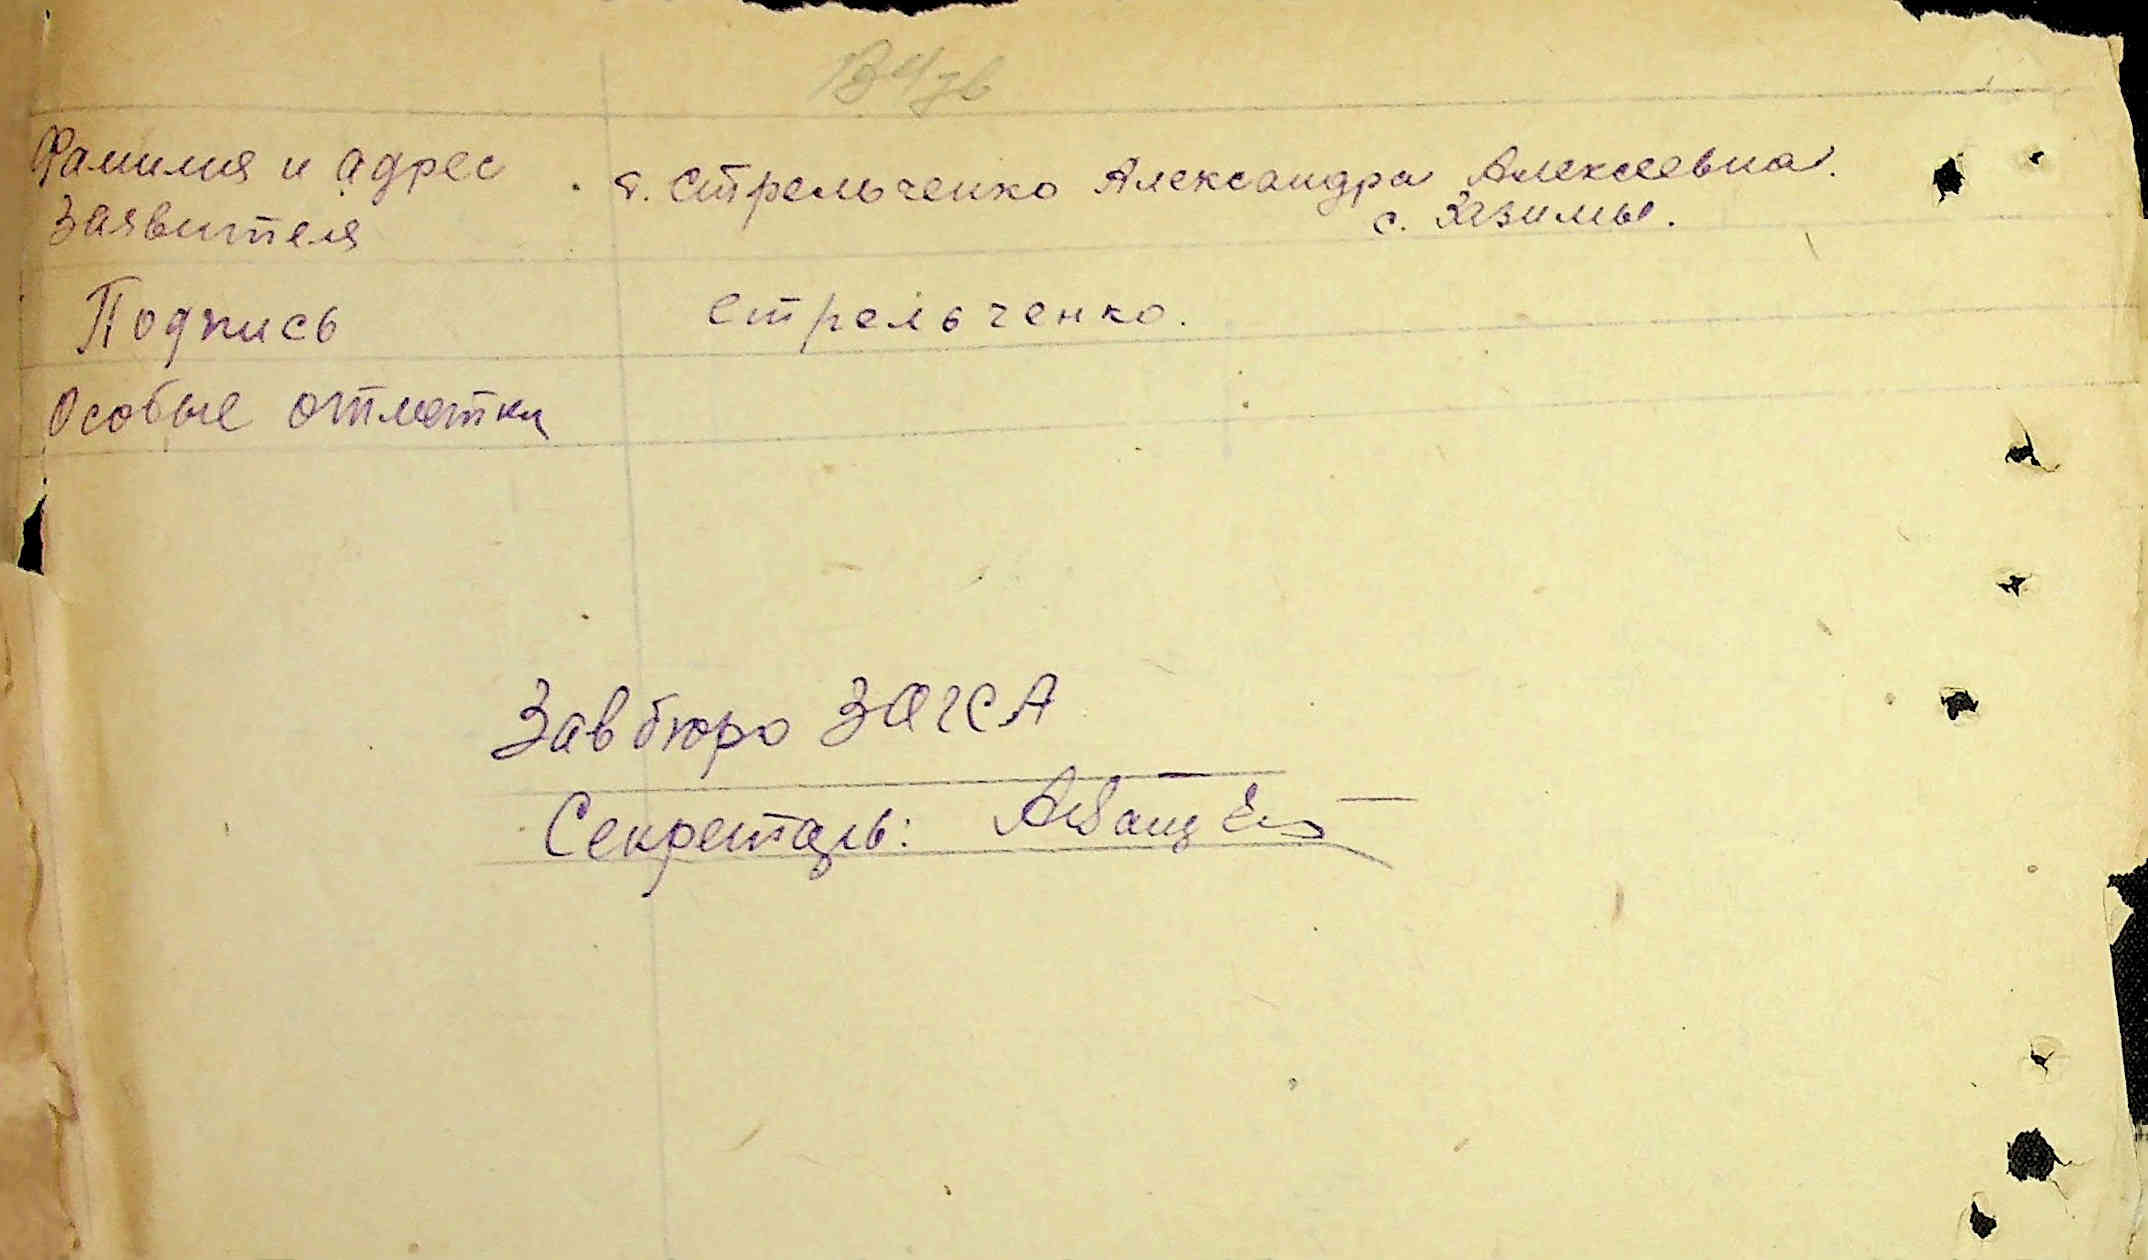 Фамилия и адрес т. Стрельченко Александра Алексеевна.
Заявителя с. Зазимы.
Подпись Стрельченко.
Особые отметки
Зав бюро ЗАГСА
Секретарь: